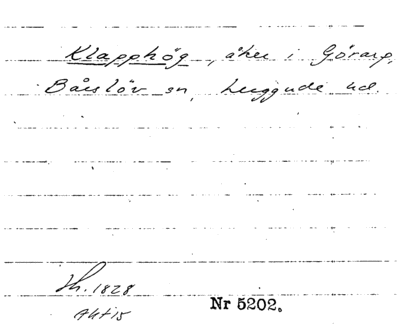 Klapphög, åker i Görarp,
Bårslöv sn, Luggude hd.
Sk. 1828
Akt 15
Nr 5202.